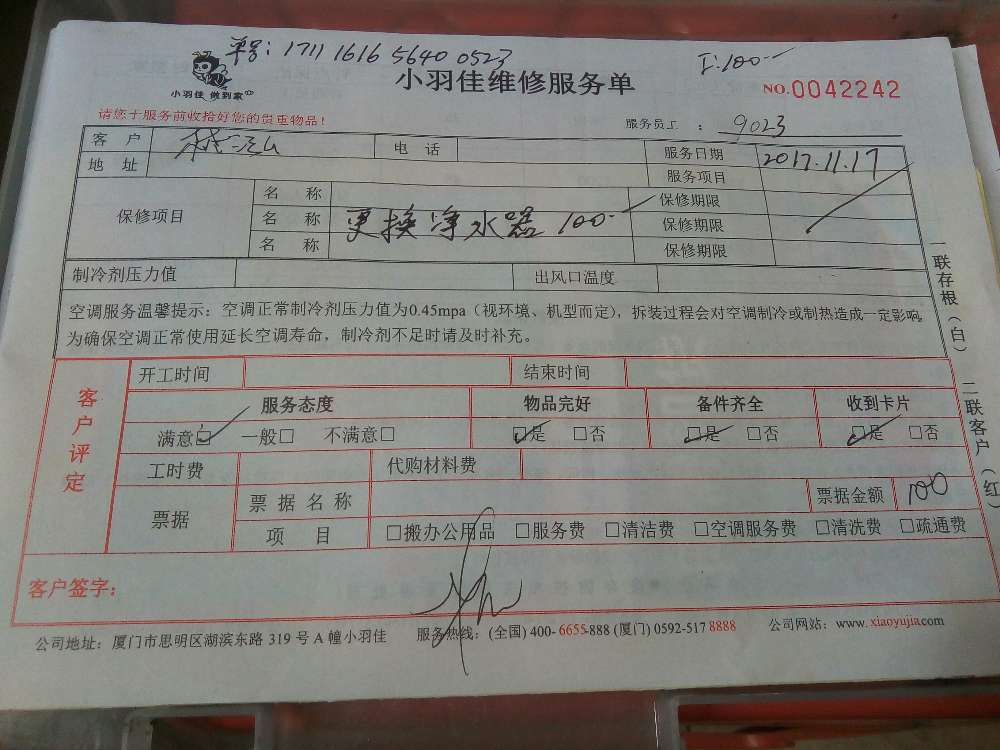 单号：1711 1616 5640 0523
工：100--
小羽佳 做到家
小羽佳维修服务单
NO.0042242
请您于服务前收拾好您的贵重物品！
服务员工 ： 9023
客 户 电 话 服务日期 2017.11.17
地 址 服务项目
保修项目
名 称 保修期限
名 称 更换净水器 100-- 保修期限
名 称 保修期限
制冷剂压力值 出风口温度
空调服务温馨提示：空调正常制冷剂压力值为0.45mpa（视环境、机型而定），拆装过程会对空调制冷或制热造成一定影响。
为确保空调正常使用延长空调寿命，制冷剂不足时请及时补充。
一联存根（白） 二联客户（红）
客户评定
开工时间 结束时间
服务态度 物品完好 备件齐全 收到卡片
满意☑ 一般□ 不满意□ ☑是 □否 ☑是 □否 ☑是 □否
工时费 代购材料费
票据
票据名称 票据金额 100
项 目 □搬办公用品 □服务费 □清洁费 □空调服务费 □清洗费 □疏通费
客户签字：
公司地址：厦门市思明区湖滨东路 319 号 A 幢小羽佳 服务热线：(全国) 400-6655-888 (厦门) 0592-517 8888 公司网站：www.xiaoyujia.com